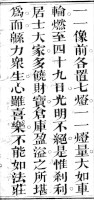 一一像前各置七燈一一燈量大如車
輪燃至四十九日光明不絕是惟剎利
居士大家多饒財寶倉庫盈溢之所堪
為而縣力衆生心雖喜樂不能如法莊